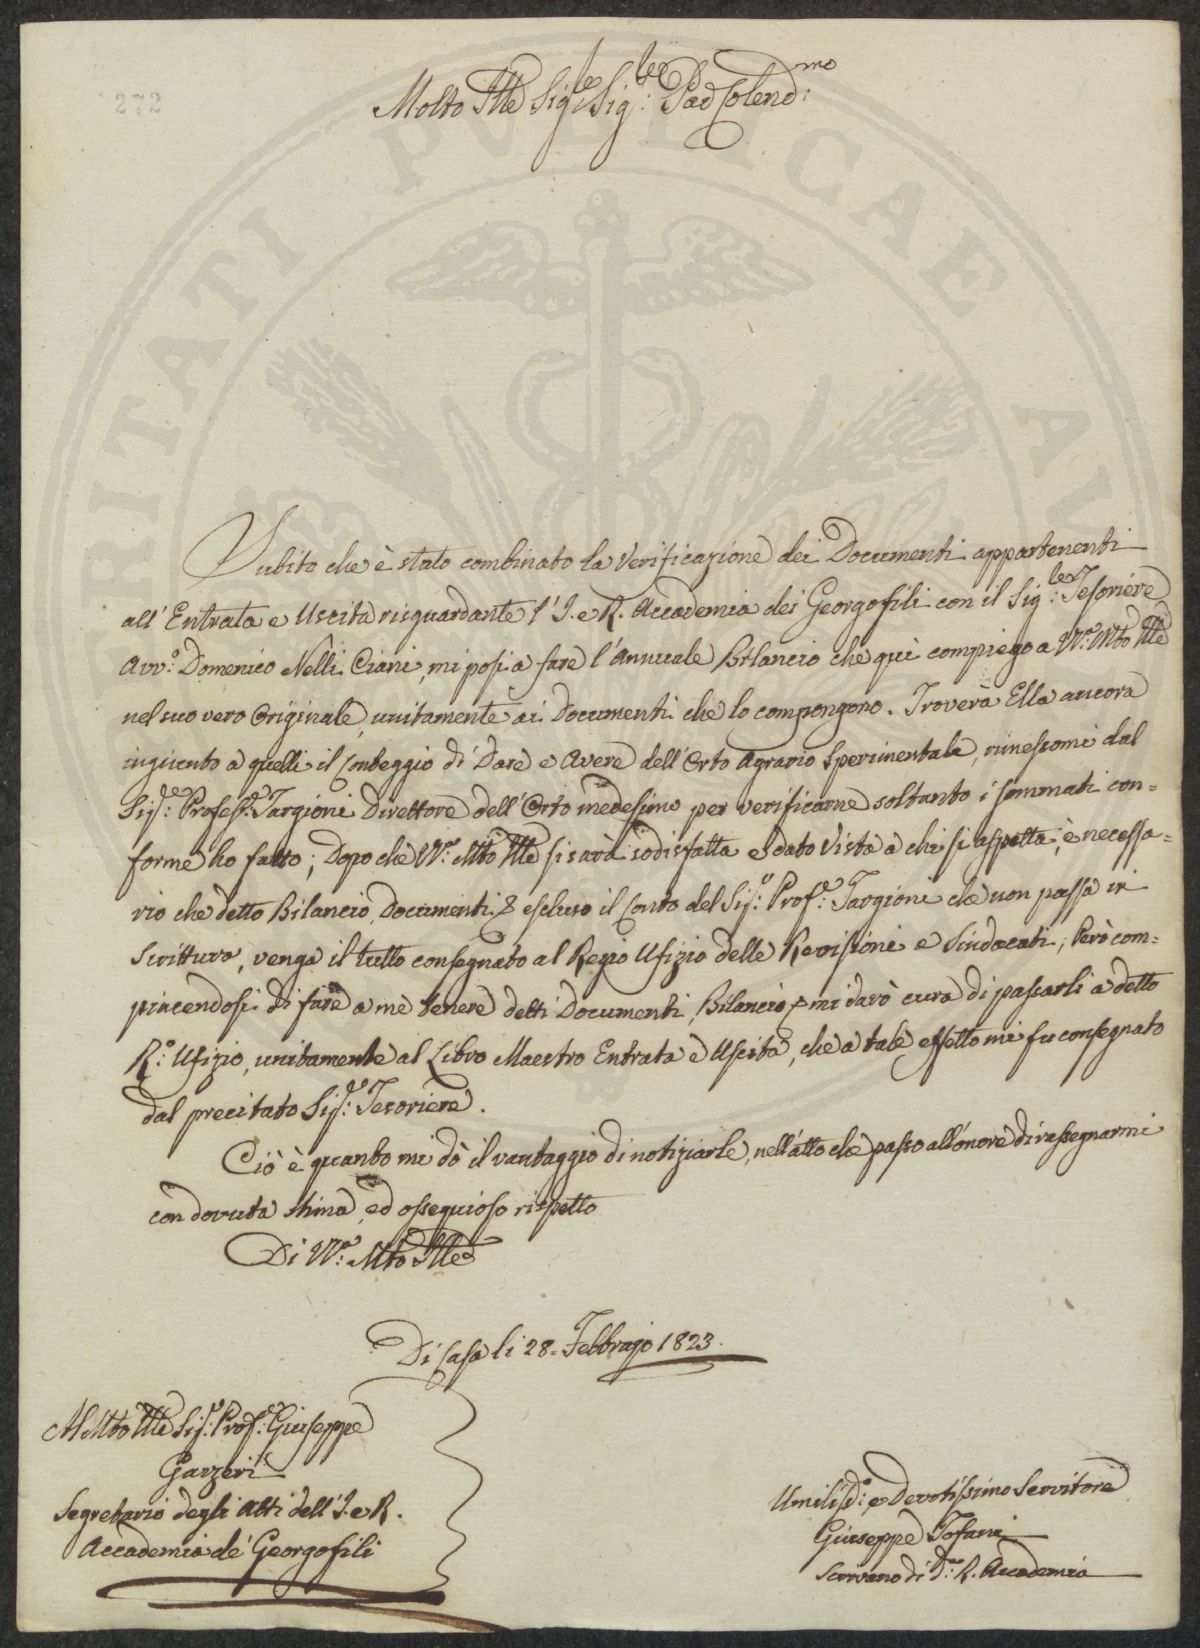 272
Molto Ill.e Sig.re Sig.re Pad Colend:mo
Subito che è stato combinato la Verificazione dei Documenti appartenenti
all'Entrata e Uscita risguardante l'I. e R. Accademia dei Georgofili con il Sig:re Tesoriere
Avv:o Domenico Nelli Ciani, mi posi a fare l'Annuale Bilancio che quì compiego a V.S: Mto Ill.e
nel suo vero Originale, unitamente ai Documenti che lo compongono. Troverà Ella ancora
inquinto a quelli il Conteggio di Dare e Avere dell'Orto Agrario Sperimentale, rimessomi dal
Sig:e Profess:e Targioni Direttore dell'Orto medesimo per verificarne soltanto i sommati con=
forme ho fatto; Dopo che V.S: Mto Ill.e si sarà sodisfatta e dato Vista a chi si aspetta, è necessa=
rio che detto Bilancio, Documenti & escluso il Conto del Sig:e Prof:e Targioni che non passa in
Scrittura, venga il tutto consegnato al Regio Ufizio delle Revisioni e Sindacati; Però com=
piacendosi di fare a me tenere detti Documenti, Bilancio & mi darò cura di passarli a detto
R:o Ufizio, unitamente al Libro Maestro Entrata e Uscita, che a tale effetto mi fu consegnato
dal precitato Sig:e Tesoriere.
Ciò è quanto mi dò il vantaggio di notiziarle, nell'atto che passo all'onore di rassegnarmi
con dovuta stima, ed ossequioso rispetto
Di V.S: Mto Ill.e
Di Casa li 28= Febbrajo 1823.
Al Mto Ill.e Sig:e Prof:e Giuseppe
Gazzeri
Segretario degli Atti dell'I. e R.
Accademia de' Georgofili
Umiliss:o e Devotissimo Servitore
Giuseppe Tofani
Scrivano di d:a R. Accademia
VITATI PVBLICAE AV